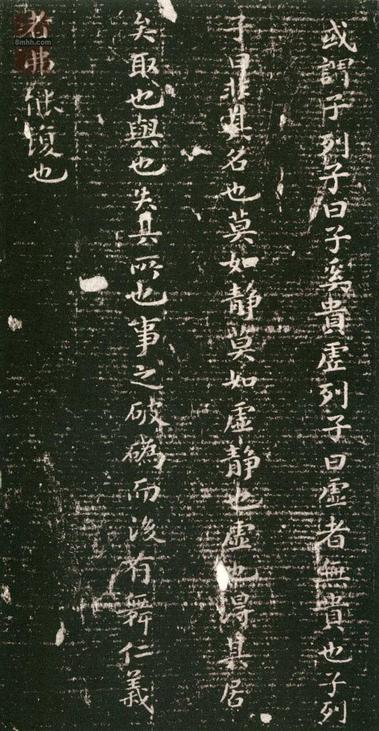 或謂子列子曰子奚貴虛列子曰虛者無貴也子列
子曰非其名也莫如靜莫如虛靜也虛也得其居
矣取也與也失其所也事之破𥗼而後有舞仁義
者弗能復也
8mhh.com